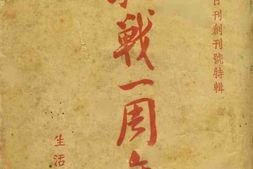 日刊創刊號特輯
戰一周年
生活